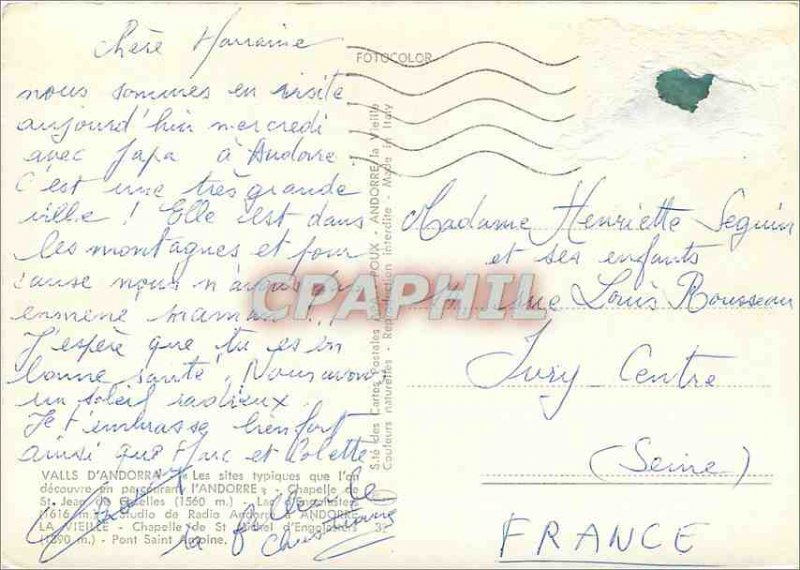 Chère Marraine
nous sommes en visite
aujourd'hui mercredi
avec Papa à Andorre.
C'est une très grande
ville ! Elle est dans
les montagnes et pour
cause nous n'avons
emmené maman !
J'espère que tu es en
bonne santé. Nous avons
un soleil radieux.
Je t'embrasse bien fort
ainsi que Marc et Colette
FOTOCOLOR
Madame Henriette Seguin
et ses enfants
rue Louis Rousseau
Ivry Centre
(Seine)
FRANCE
S.té des Cartes Postales - ANDORRE la Vieille
Couleurs naturelles - Reproduction interdite - Made in Italy
CPARHIL
VALLS D'ANDORRA - Les sites typiques que l'on
découvre en parcourant l'ANDORRE - Chapelle de
St. Jean de (1560 m.) - Lac d'Engolasters
(1616 m.) - Studio de Radio Andorra à ANDORRE
LA VIEILLE - Chapelle de St Michel d'Engolasters
(1390 m.) - Pont Saint Antoine. 32
Christiane